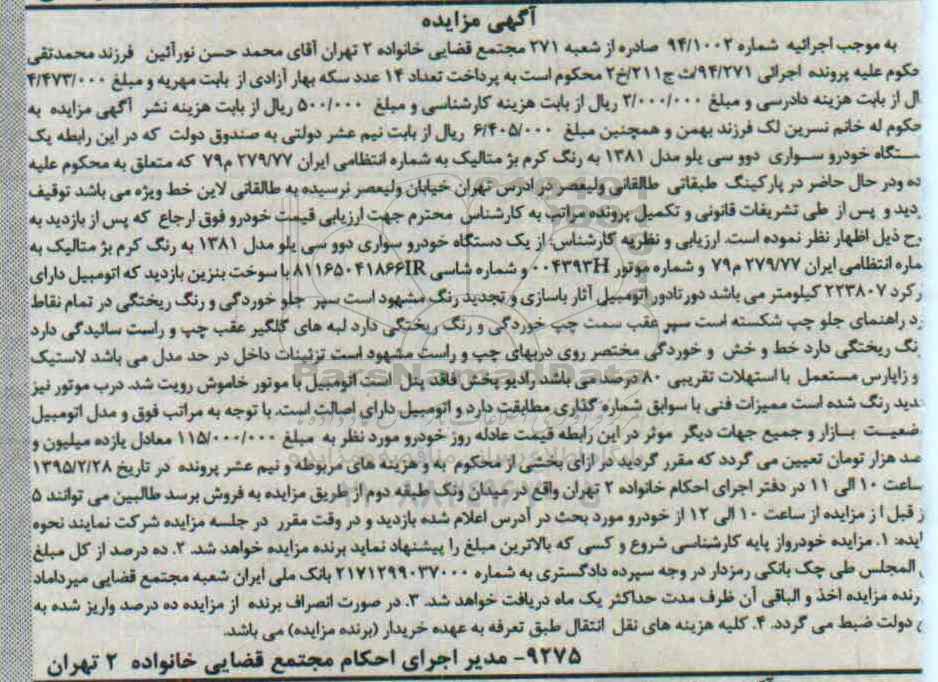 آگهی مزایده
به موجب اجرائیه شماره ۹۴/۱۰۰۲ صادره از شعبه ۲۷۱ مجتمع قضایی خانواده ۲ تهران آقای محمد حسن نورآئین فرزند محمدتقی
حکوم علیه پرونده اجرائی ۹۴/۲۷۱/ث ج۲۱۱/خ۲ محکوم است به پرداخت تعداد ۱۴ عدد سکه بهار آزادی از بابت مهریه و مبلغ ۴/۴۷۳/۰۰۰
ال از بابت هزینه دادرسی و مبلغ ۲/۰۰۰/۰۰۰ ریال از بابت هزینه کارشناسی و مبلغ ۵۰۰/۰۰۰ ریال از بابت هزینه نشر آگهی مزایده به
حکوم له خانم نسرین لک فرزند بهمن و همچنین مبلغ ۶/۴۰۵/۰۰۰ ریال از بابت نیم عشر دولتی به صندوق دولت که در این رابطه یک
ستگاه خودرو سواری دوو سی یلو مدل ۱۳۸۱ به رنگ کرم بژ متالیک به شماره انتظامی ایران ۲۷۹/۷۷ م۷۹ که متعلق به محکوم علیه
ده ودر حال حاضر در پارکینگ طبقاتی طالقانی ولیعصر در ادرس تهران خیابان ولیعصر نرسیده به طالقانی لاین خط ویژه می باشد توقیف
ردید و پس از طی تشریفات قانونی و تکمیل پرونده مراتب به کارشناس محترم جهت ارزیابی قیمت خودرو فوق ارجاع که پس از بازدید به
رح ذیل اظهار نظر نموده است. ارزیابی و نظریه کارشناس: از یک دستگاه خودرو سواری دوو سی یلو مدل ۱۳۸۱ به رنگ کرم بژ متالیک به
ماره انتظامی ایران ۲۷۹/۷۷ م۷۹ و شماره موتور ۰۰۴۳۹۳H و شماره شاسی ۸۱۱۶۵۰۴۱۸۶۶IR با سوخت بنزین بازدید که اتومبیل دارای
رکرد ۲۲۳۸۰۷ کیلومتر می باشد دورتادور اتومبیل آثار باسازی و تجدید رنگ مشهود است سپر جلو خوردگی و رنگ ریختگی در تمام نقاط
رد راهنمای جلو چپ شکسته است سپر عقب سمت چپ خوردگی و رنگ ریختگی دارد لبه های گلگیر عقب چپ و راست سائیدگی دارد
نگ ریختگی دارد خط و خش و خوردگی مختصر روی دربهای چپ و راست مشهود است تزئینات داخل در حد مدل می باشد لاستیک
و زاپارس مستعمل با استهلات تقریبی ۸۰ درصد می باشد رادیو پخش فاقد پنل است اتومبیل با موتور خاموش رویت شد. درب موتور نیز
جدید رنگ شده است ممیزات فنی با سوابق شماره گذاری مطابقت دارد و اتومبیل دارای اصالت است. با توجه به مراتب فوق و مدل اتومبیل
ضعیت بازار و جمیع جهات دیگر موثر در این رابطه قیمت عادله روز خودرو مورد نظر به مبلغ ۱۱۵/۰۰۰/۰۰۰ معادل یازده میلیون و
صد هزار تومان تعیین می گردد که مقرر گردید در ازای بخشی از محکوم به و هزینه های مربوطه و نیم عشر پرونده در تاریخ ۱۳۹۵/۲/۲۸
ساعت ۱۰ الی ۱۱ در دفتر اجرای احکام خانواده ۲ تهران واقع در میدان ونک طبقه دوم از طریق مزایده به فروش برسد طالبین می توانند ۵
ز قبل از مزایده از ساعت ۱۰ الی ۱۲ از خودرو مورد بحث در آدرس اعلام شده بازدید و در وقت مقرر در جلسه مزایده شرکت نمایند نحوه
ایده: ۱. مزایده خودرواز پایه کارشناسی شروع و کسی که بالاترین مبلغ را پیشنهاد نماید برنده مزایده خواهد شد. ۲. ده درصد از کل مبلغ
المجلس طی چک بانکی رمزدار در وجه سپرده دادگستری به شماره ۲۱۷۱۲۹۹۰۳۷۰۰۰ بانک ملی ایران شعبه مجتمع قضایی میرداماد
رنده مزایده اخذ و الباقی آن ظرف مدت حداکثر یک ماه دریافت خواهد شد. ۳. در صورت انصراف برنده از مزایده ده درصد واریز شده به
دولت ضبط می گردد. ۴. کلیه هزینه های نقل انتقال طبق تعرفه به عهده خریدار (برنده مزایده) می باشد.
۹۲۷۵- مدیر اجرای احکام مجتمع قضایی خانواده ۲ تهران
ParsNamadData